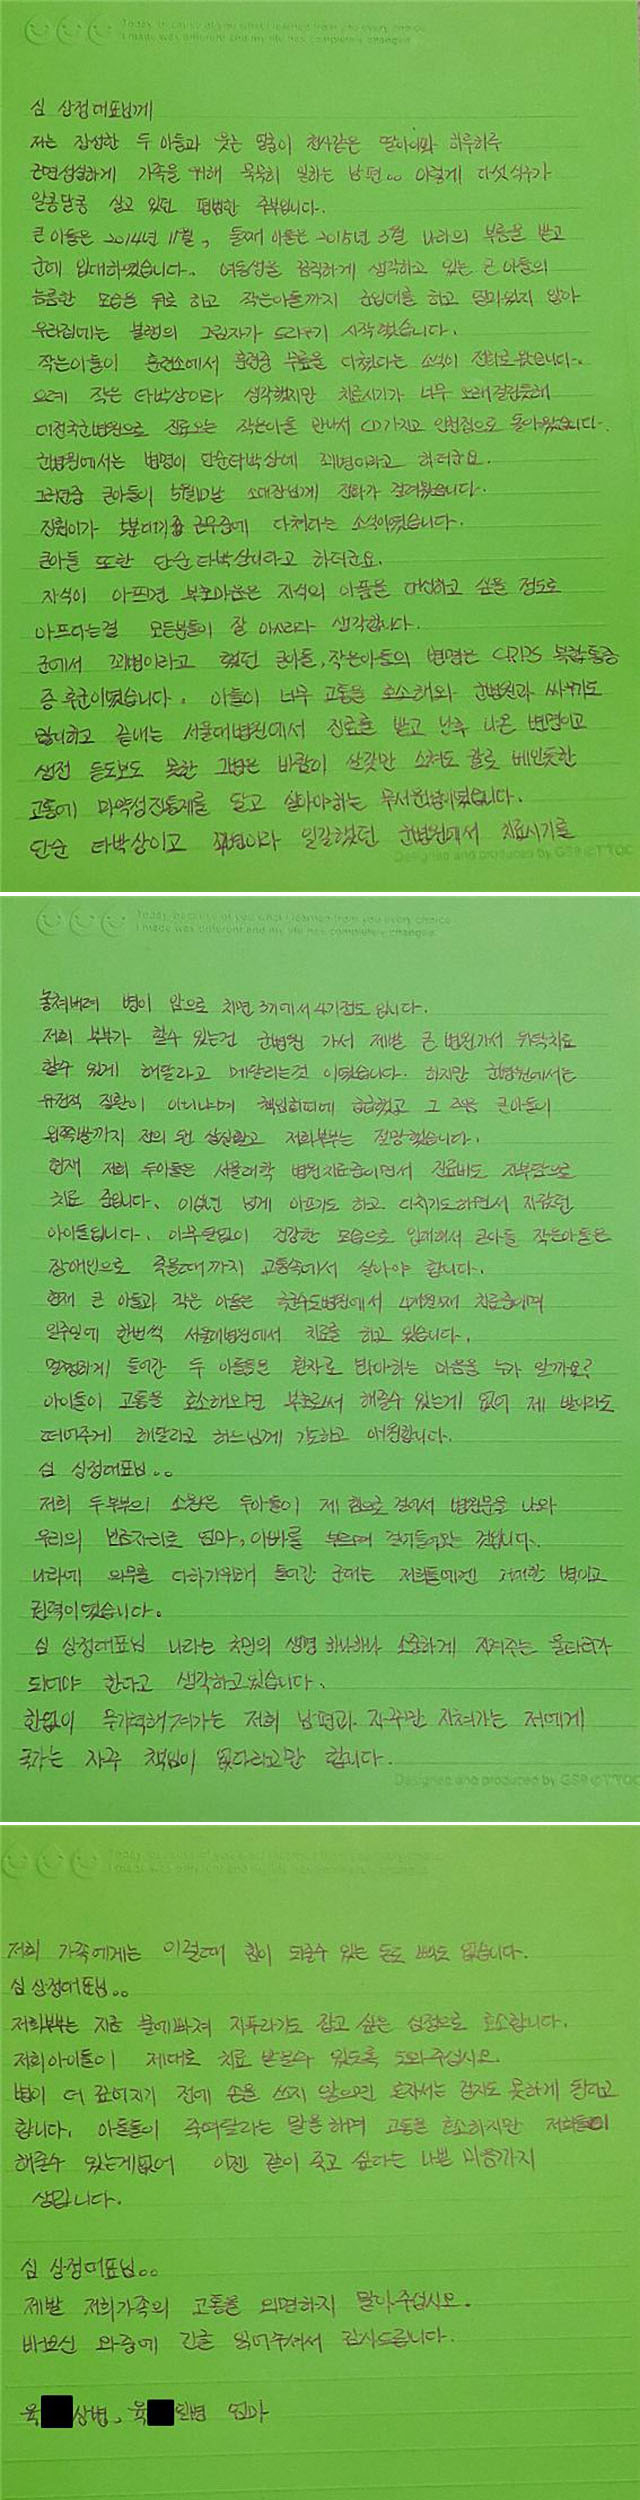 Today, because of you what I learned from you every choice
I made was different and my life has completely changed.
심 상정대표님께
저는 장성한 두 아들과 웃는 얼굴이 천사같은 딸아이와 하루하루
근면성실하게 가족을 위해 묵묵히 일하는 남편.. 이렇게 다섯식구가
알콩달콩 살고 있던 평범한 주부입니다.
큰아들은 2014년 11월, 둘째 아들은 2015년 3월 나라의 부름을 받고
군에 입대하였습니다. 여동생을 끔찍하게 생각하고 있는 큰아들의
늠름한 모습을 뒤로 하고 작은아들까지 군입대를 하고 얼마있지 않아
우리집에는 불행의 그림자가 드리우기 시작했습니다.
작은아들이 훈련소에서 훈련중 무릎을 다쳤다는 소식이 전화로왔습니다.
으레 작은 타박상이라 생각했지만 치료시기가 너무 오래걸린듯해
대전국군병원으로 진료오는 작은아들 만나서 CD가지고 인천집으로 돌아왔습니다.
군병원에서는 병명이 단순타박상에 꾀병이라고 하더군요.
그러던중 큰아들이 5월10날 소대장님께 전화가 걸려왔습니다.
진원이가 5분대기조 근무중에 다쳤다는 소식이였습니다.
큰아들 또한 단순타박상이라고 하더군요.
자식이 아프면 부모마음은 자식의 아픔을 대신하고 싶을 정도로
아프다는걸 모든분들이 잘 아시리라 생각합니다.
군에서 꾀병이라고 했던 큰아들, 작은아들의 병명은 CRPS 복합통증
증후군이였습니다. 아들이 너무 고통을 호소해와 군병원과 싸우기도
많이하고 끝내는 서울대병원에서 진료를 받고 난후 나온 병명이고
생전 듣도보도 못한 그병은 바람이 살갗만 스쳐도 칼로 베인듯한
고통에 마약성진통제를 달고 살아야하는 무서운병이였습니다.
단순 타박상이고 꾀병이라 일갈했던 군병원에서 치료시기를
Designed and produced by GS9 ⓒTTOO
Today, because of you what I learned from you every choice
I made was different and my life has completely changed.
놓쳐버려 병이 암으로 치면 3기에서 4기정도 입니다.
저희 부부가 할수 있는건 군병원 가서 제발 큰 병원가서 위탁치료
할수 있게 해달라고 매달리는것 이였습니다. 하지만 군병원에서는
유전적 질환이 아니냐며 책임회피에 급급했고 그 즈음 큰아들이
왼쪽발까지 전이 된 상실황고 저희부부는 절망했습니다.
현재 저희 두아들은 서울대학 병원치료중이면서 진료비도 자부담으로
치료 중입니다. 이십년 넘게 아프기도 하고 다치기도하면서 자랐던
아이들입니다. 아무탈없이 건강한 모습으로 입대해서 큰아들 작은아들은
장애인으로 죽을때까지 고통속에서 살아야 합니다.
현재 큰 아들과 작은 아들은 국군수도병원에서 4개월째 치료중이며
일주일에 한번씩 서울대병원에서 치료를 하고 있습니다.
멀쩡하게 들어간 두 아들을 환자로 봐야하는 마음을 누가 알까요?
아이들이 고통을 호소해오면 부모로서 해줄수 있는게 없어 제 발이라도
떼어주게 해달라고 하느님께 기도하고 애원합니다.
심 상정대표님..
저희 두부부의 소원은 두아들이 제 힘으로 걸어서 병원문을 나와
우리의 보금자리로 엄마, 아빠를 부르며 걸어들어오는 것입니다.
나라에 의무를 다하기위해 들어간 군대는 저희들에겐 거대한 벽이고
권력이였습니다.
심 상정대표님 나라는 국민의 생명 하나하나 소중하게 지켜주는 울타리가
되어야 한다고 생각하고있습니다.
한없이 무기력해져가는 저희 남편과 자꾸만 지쳐가는 저에게
국가는 자꾸 책임이 없다라고만 합니다.
Designed and produced by GS9 ⓒTTOO
Today, because of you what I learned from you every choice
I made was different and my life has completely changed.
저희 가족에게는 이럴때 힘이 되줄수 있는 돈도 빽도 없습니다.
심 상정대표님..
저희부부는 지금 물에빠져 지푸라기도 잡고 싶은 심정으로 호소합니다.
저희아이들이 제대로 치료 받을수 있도록 도와주십시오.
병이 더 깊어지기 전에 손을 쓰지 않으면 혼자서는 걷지도 못하게 된다고
합니다. 아들들이 죽여달라는 말을하며 고통을 호소하지만 저희들이
해줄수 있는게없어 이젠 같이 죽고 싶다는 나쁜 마음까지
생깁니다.
심 상정대표님..
제발 저희가족의 고통을 외면하지 말아주십시오.
바쁘신 와중에 긴글 읽어주셔서 감사드립니다.
육 상병, 육 일병 엄마